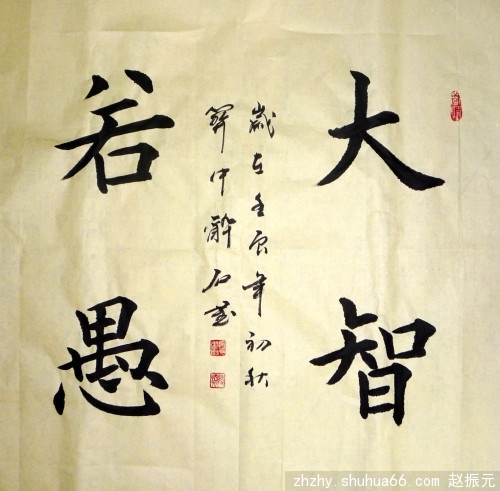 大智
若愚
歲在壬辰年初秋
關中石
zhzhy.shuhua66.com 赵振元